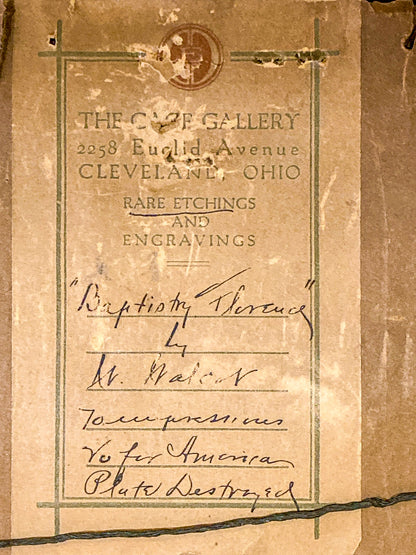 THE CASE GALLERY
2258 Euclid Avenue
CLEVELAND, OHIO
RARE ETCHINGS
AND
ENGRAVINGS
"Baptistry Florence"
by
W. Walcot
70 impressions
20 for American
Plate Destroyed